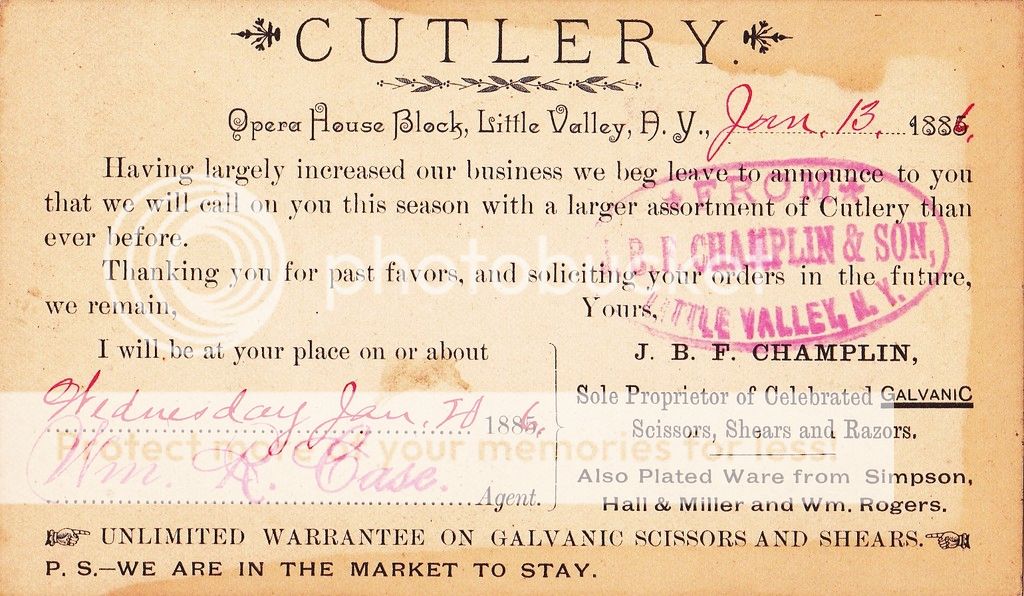 CUTLERY.
Opera House Block, Little Valley, N. Y., Jan. 13. 1886.
Having largely increased our business we beg leave to announce to you
that we will call on you this season with a larger assortment of Cutlery than
ever before.
Thanking you for past favors, and soliciting your orders in the future,
we remain, Yours,
★ FROM ★
J. B. F. CHAMPLIN & SON,
LITTLE VALLEY, N. Y.
I will be at your place on or about
Wednesday Jan. 20 1886.
Wm. R. Case. Agent.
J. B. F. CHAMPLIN,
Sole Proprietor of Celebrated GALVANIC
Scissors, Shears and Razors.
Also Plated Ware from Simpson,
Hall & Miller and Wm. Rogers.
UNLIMITED WARRANTEE ON GALVANIC SCISSORS AND SHEARS.
P. S.—WE ARE IN THE MARKET TO STAY.
photobucket
Protect more of your memories for less!